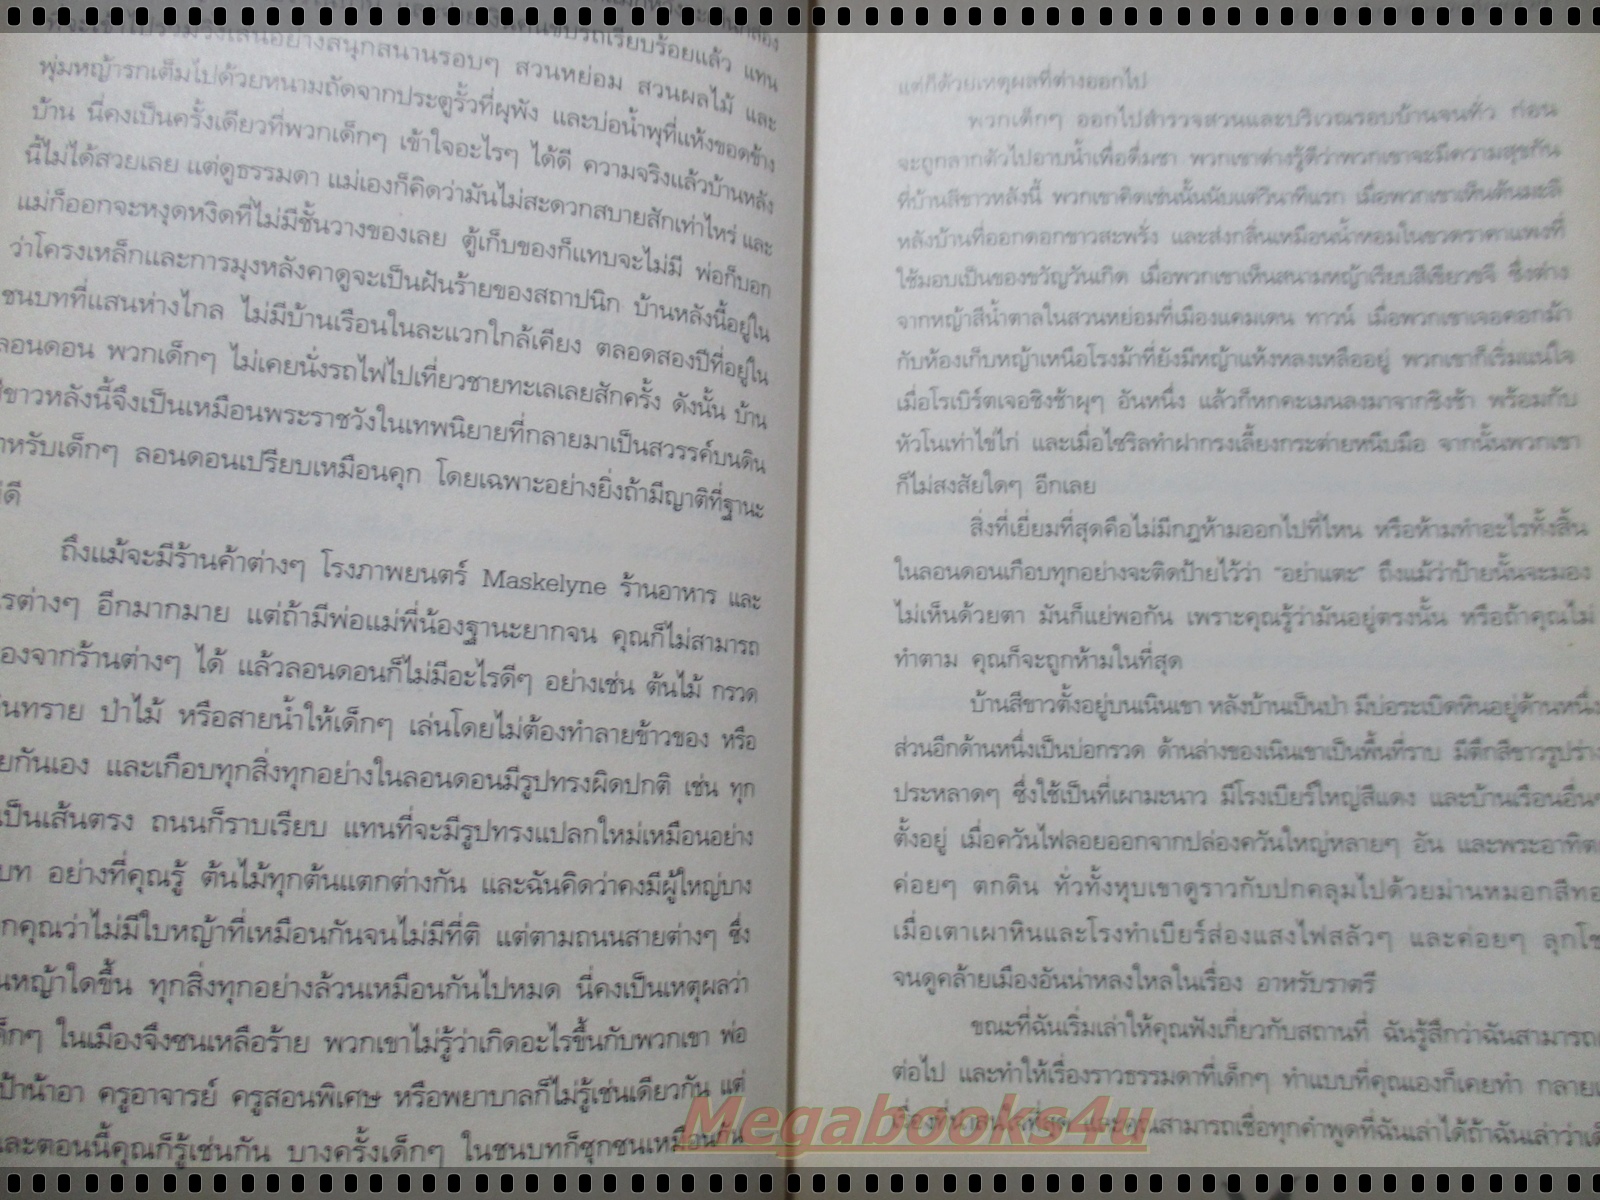 ที่จะเข้าไปร่วมวิ่งเล่นอย่างสนุกสนานรอบๆ สวนหย่อม สวนผลไม้ และ
พุ่มหญ้ารกเต็มไปด้วยหนามถัดจากประตูรั้วที่ผุพัง และบ่อน้ำพุที่แห้งขอดข้าง
บ้าน นี่คงเป็นครั้งเดียวที่พวกเด็กๆ เข้าใจอะไรๆ ได้ดี ความจริงแล้วบ้านหลัง
นี้ไม่ได้สวยเลย แต่ดูธรรมดา แม่เองก็คิดว่ามันไม่สะดวกสบายสักเท่าไหร่ และ
แม่ก็ออกจะหงุดหงิดที่ไม่มีชั้นวางของเลย ตู้เก็บของก็แทบจะไม่มี พ่อก็บอก
ว่าโครงเหล็กและการมุงหลังคาดูจะเป็นฝันร้ายของสถาปนิก บ้านหลังนี้อยู่ใน
ชนบทที่แสนห่างไกล ไม่มีบ้านเรือนในละแวกใกล้เคียง ตลอดสองปีที่อยู่ใน
ลอนดอน พวกเด็กๆ ไม่เคยนั่งรถไฟไปเที่ยวชายทะเลเลยสักครั้ง ดังนั้น บ้าน
สีขาวหลังนี้จึงเป็นเหมือนพระราชวังในเทพนิยายที่กลายมาเป็นสวรรค์บนดิน
าหรับเด็กๆ ลอนดอนเปรียบเหมือนคุก โดยเฉพาะอย่างยิ่งถ้ามีญาติที่ฐานะ
ดี
ถึงแม้จะมีร้านค้าต่างๆ โรงภาพยนตร์ Maskelyne ร้านอาหาร และ
รต่างๆ อีกมากมาย แต่ถ้ามีพ่อแม่พี่น้องฐานะยากจน คุณก็ไม่สามารถ
องจากร้านต่างๆ ได้ แล้วลอนดอนก็ไม่มีอะไรดีๆ อย่างเช่น ต้นไม้ กรวด
นทราย ป่าไม้ หรือสายน้ำให้เด็กๆ เล่นโดยไม่ต้องทำลายข้าวของ หรือ
ยกันเอง และเกือบทุกสิ่งทุกอย่างในลอนดอนมีรูปทรงผิดปกติ เช่น ทุก
เป็นเส้นตรง ถนนก็ราบเรียบ แทนที่จะมีรูปทรงแปลกใหม่เหมือนอย่าง
บท อย่างที่คุณรู้ ต้นไม้ทุกต้นแตกต่างกัน และฉันคิดว่าคงมีผู้ใหญ่บาง
กคุณว่าไม่มีใบหญ้าที่เหมือนกันจนไม่มีที่ติ แต่ตามถนนสายต่างๆ ซึ่ง
นหญ้าใดขึ้น ทุกสิ่งทุกอย่างล้วนเหมือนกันไปหมด นี่คงเป็นเหตุผลว่า
ด็กๆ ในเมืองจึงซนเหลือร้าย พวกเขาไม่รู้ว่าเกิดอะไรขึ้นกับพวกเขา พ่อ
ป้าน้าอา ครูอาจารย์ ครูสอนพิเศษ หรือพยาบาลก็ไม่รู้เช่นเดียวกัน แต่
และตอนนี้คุณก็รู้เช่นกัน บางครั้งเด็กๆ ในชนบทก็ซุกซนเหมือนกัน
แต่ก็ด้วยเหตุผลที่ต่างออกไป
พวกเด็กๆ ออกไปสำรวจสวนและบริเวณรอบบ้านจนทั่ว ก่อน
จะถูกลากตัวไปอาบน้ำเพื่อดื่มชา พวกเขาต่างรู้ดีว่าพวกเขาจะมีความสุขกัน
ที่บ้านสีขาวหลังนี้ พวกเขาคิดเช่นนั้นนับแต่วินาทีแรก เมื่อพวกเขาเห็นต้นมะลิ
หลังบ้านที่ออกดอกขาวสะพรั่ง และส่งกลิ่นเหมือนน้ำหอมในขวดราคาแพงที่
ใช้มอบเป็นของขวัญวันเกิด เมื่อพวกเขาเห็นสนามหญ้าเรียบสีเขียวขจี ซึ่งต่าง
จากหญ้าสีน้ำตาลในสวนหย่อมที่เมืองแคมเดน ทาวน์ เมื่อพวกเขาเจอคอกม้า
กับห้องเก็บหญ้าเหนือโรงม้าที่ยังมีหญ้าแห้งหลงเหลืออยู่ พวกเขาก็เริ่มแน่ใจ
เมื่อโรเบิร์ตเจอชิงช้าผุๆ อันหนึ่ง แล้วก็หกคะเมนลงมาจากชิงช้า พร้อมกับ
หัวโนเท่าไข่ไก่ และเมื่อไซริลทำฝากรงเลี้ยงกระต่ายหนีบมือ จากนั้นพวกเขา
ก็ไม่สงสัยใดๆ อีกเลย
สิ่งที่เยี่ยมที่สุดคือไม่มีกฎห้ามออกไปที่ไหน หรือห้ามทำอะไรทั้งสิ้น
ในลอนดอนเกือบทุกอย่างจะติดป้ายไว้ว่า "อย่าแตะ" ถึงแม้ว่าป้ายนั้นจะมอง
ไม่เห็นด้วยตา มันก็แย่พอกัน เพราะคุณรู้ว่ามันอยู่ตรงนั้น หรือถ้าคุณไม่
ทำตาม คุณก็จะถูกห้ามในที่สุด
บ้านสีขาวตั้งอยู่บนเนินเขา หลังบ้านเป็นป่า มีบ่อระเบิดหินอยู่ด้านหนึ่ง
ส่วนอีกด้านหนึ่งเป็นบ่อกรวด ด้านล่างของเนินเขาเป็นพื้นที่ราบ มีตึกสีขาวรูปร่าง
ประหลาดๆ ซึ่งใช้เป็นที่เผามะนาว มีโรงเบียร์ใหญ่สีแดง และบ้านเรือนอื่นๆ
ตั้งอยู่ เมื่อควันไฟลอยออกจากปล่องควันใหญ่หลายๆ อัน และพระอาทิต
ค่อยๆ ตกดิน ทั่วทั้งหุบเขาดูราวกับปกคลุมไปด้วยม่านหมอกสีทอ
เมื่อเตาเผาหินและโรงทำเบียร์ส่องแสงไฟสลัวๆ และค่อยๆ ลุกโช
จนดูคล้ายเมืองอันน่าหลงใหลในเรื่อง อาหรับราตรี
ขณะที่ฉันเริ่มเล่าให้คุณฟังเกี่ยวกับสถานที่ ฉันรู้สึกว่าฉันสามารถ
ต่อไป และทำให้เรื่องราวธรรมดาที่เด็กๆ ทำแบบที่คุณเองก็เคยทำ กลาย
เรื่องที่น่าสนใจที่สุด และคุณสามารถเชื่อทุกคำพูดที่ฉันเล่าได้ถ้าฉันเล่าว่าเด็
Megabooks4u